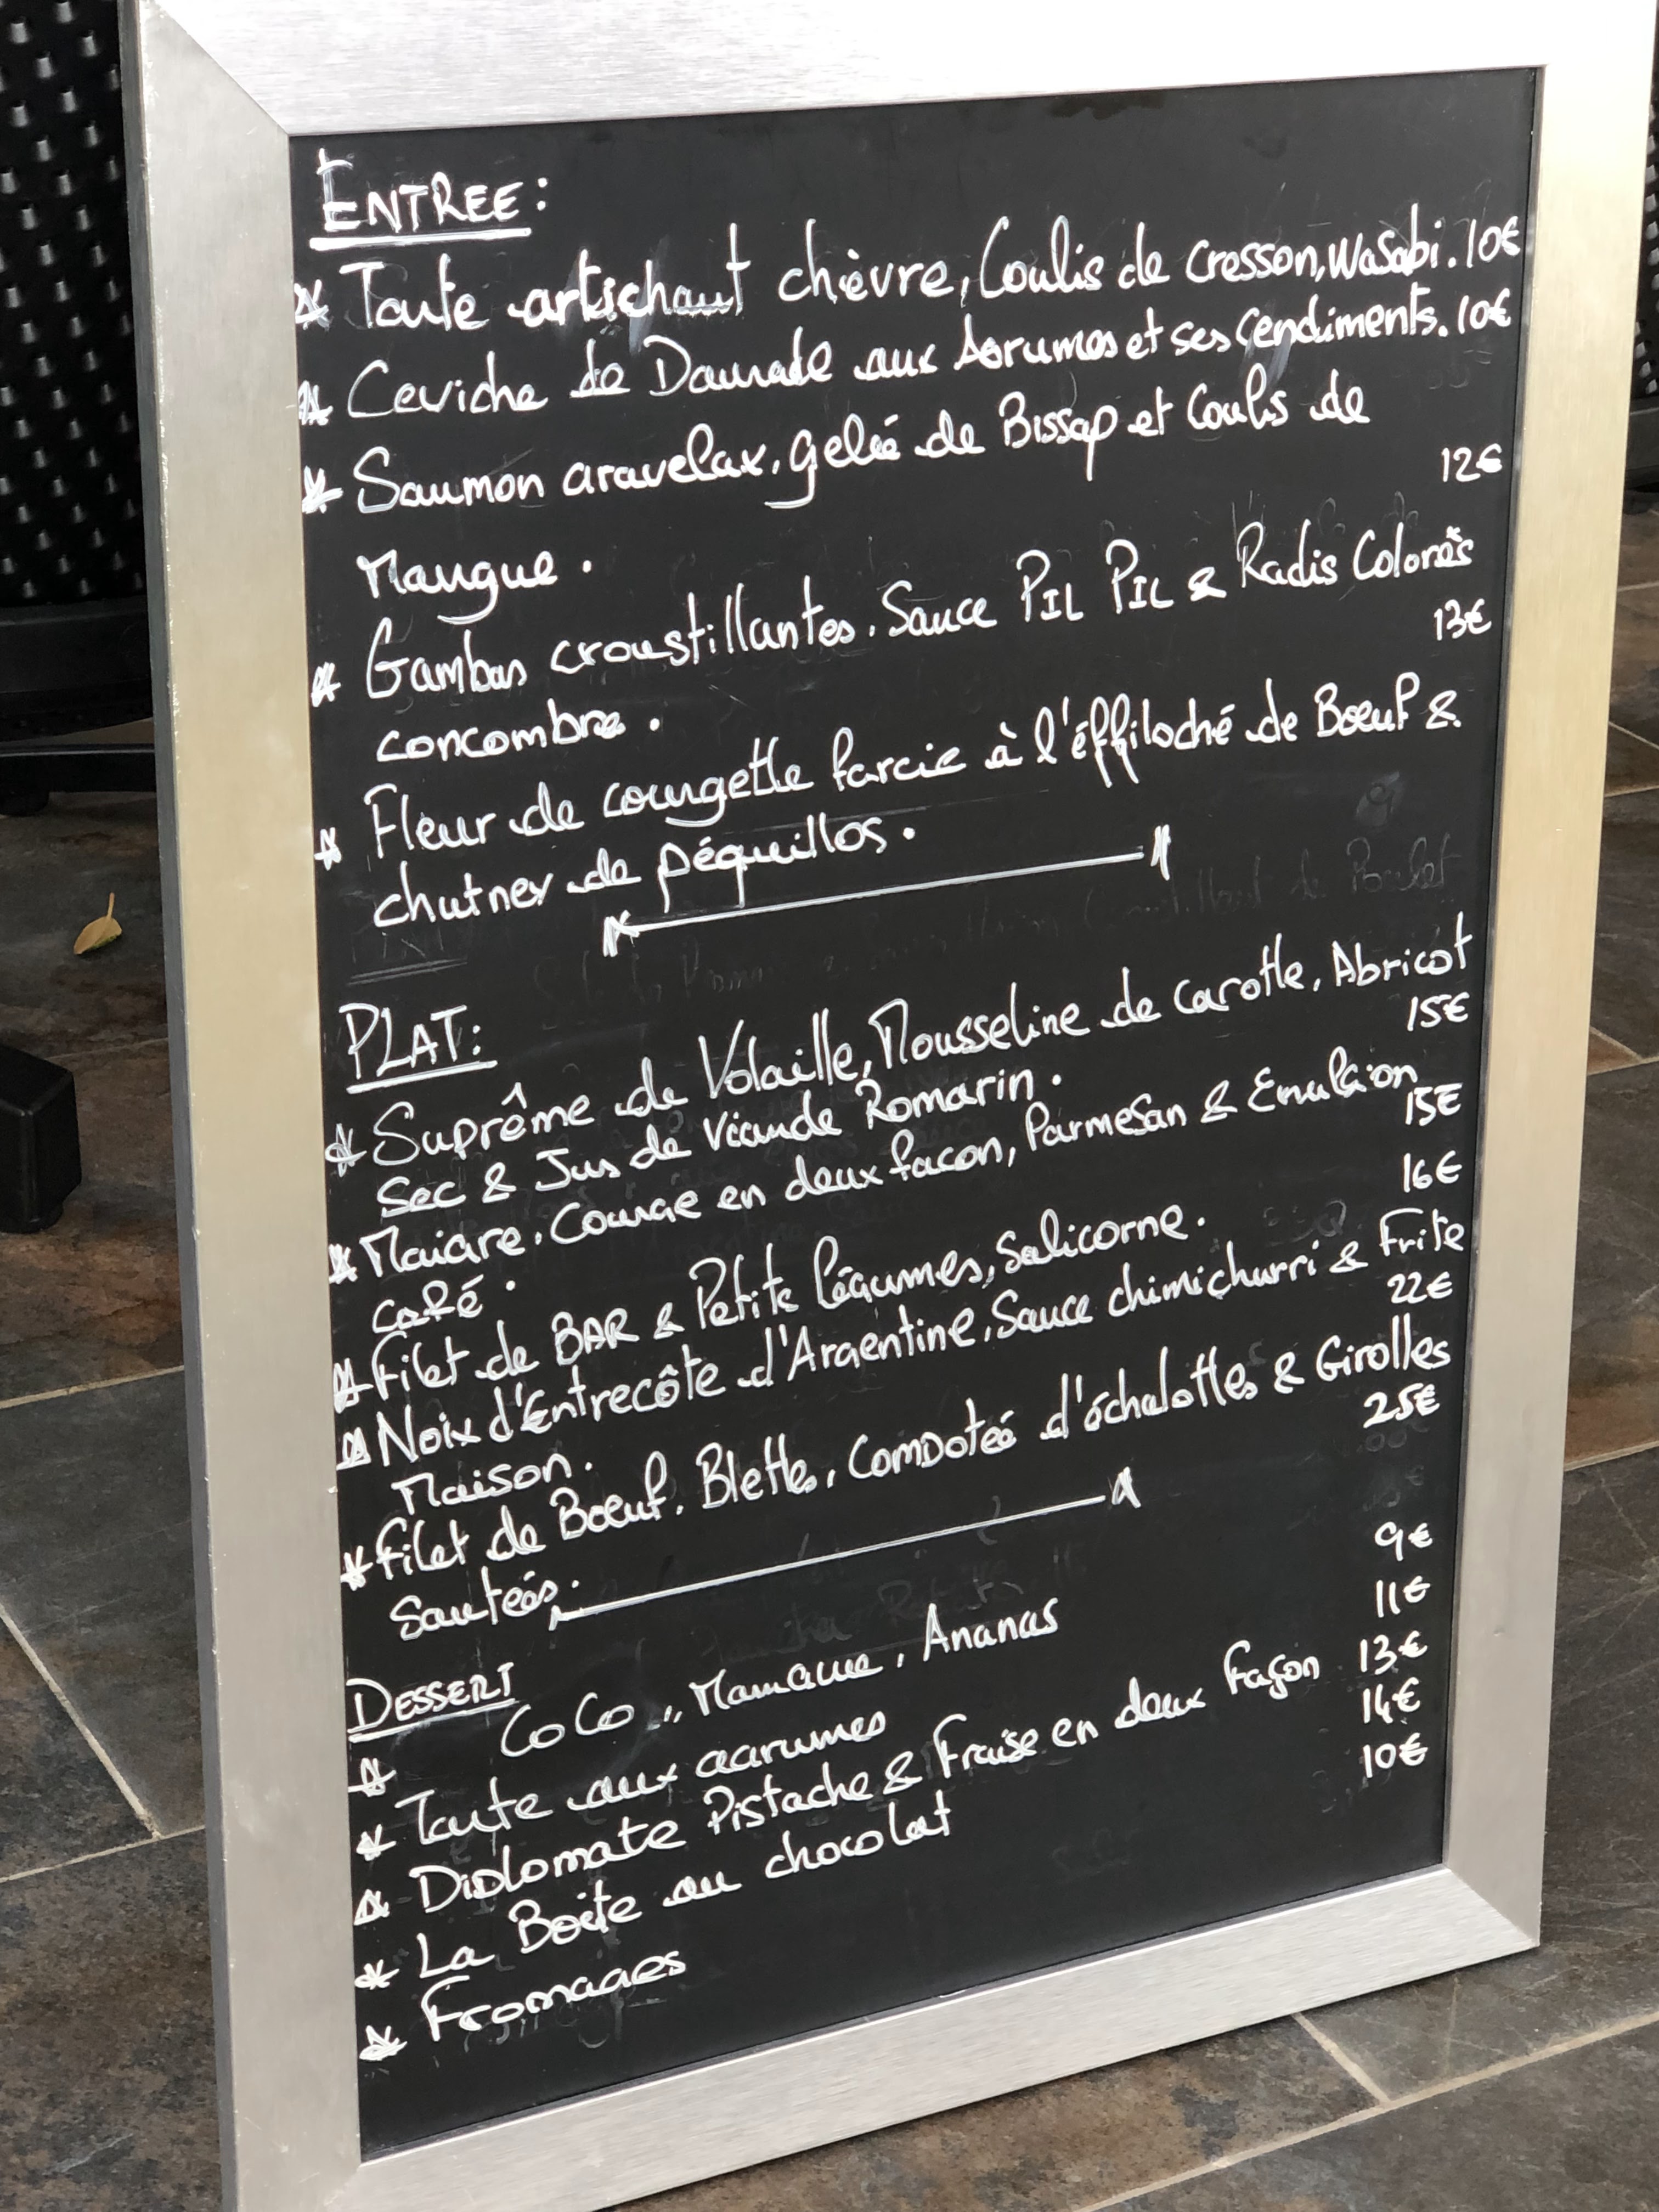 ENTREE:
Tarte artichaut chèvre, Coulis de cresson, Wasabi. 10€
Ceviche de Daurade aux Agrumes et ses Condiments. 10€
Saumon gravelax, gelée de Bissap et Coulis de
12€
Mangue.
Gambas croustillantes. Sauce PIL PIL & Radis Colorés
13€
concombre.
Fleur de courgette farcie à l'éffiloché de Boeuf &
chutney de péquillos.
PLAT:
Suprême de Volaille, Mousseline de carotte, Abricot
15€
Sec & Jus de Viande Romarin.
Maigre, Courge en deux facon, Parmesan & Emulsion
15€
café.
16€
Filet de BAR & Petits légumes, Salicorne.
Noix d'Entrecôte d'Argentine, Sauce chimichurri & Frite
22€
Maison.
Filet de Boeuf, Blette, Compoteé d'échalottes & Girolles
25€
Sauteés.
DESSERT
CoCo, Mangue, Ananas 9€
Tarte aux agrumes 11€
Diplomate Pistache & Fraise en deux Façon 13€
La Boite au chocolat 14€
Fromages 10€